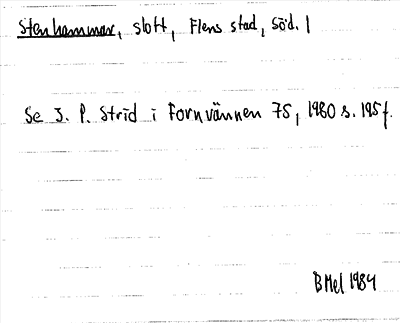 Stenhammar, slott, Flens stad, Söd. l
Se J. P. Strid i Fornvännen 75, 1980 s. 195f.
BMel 1984